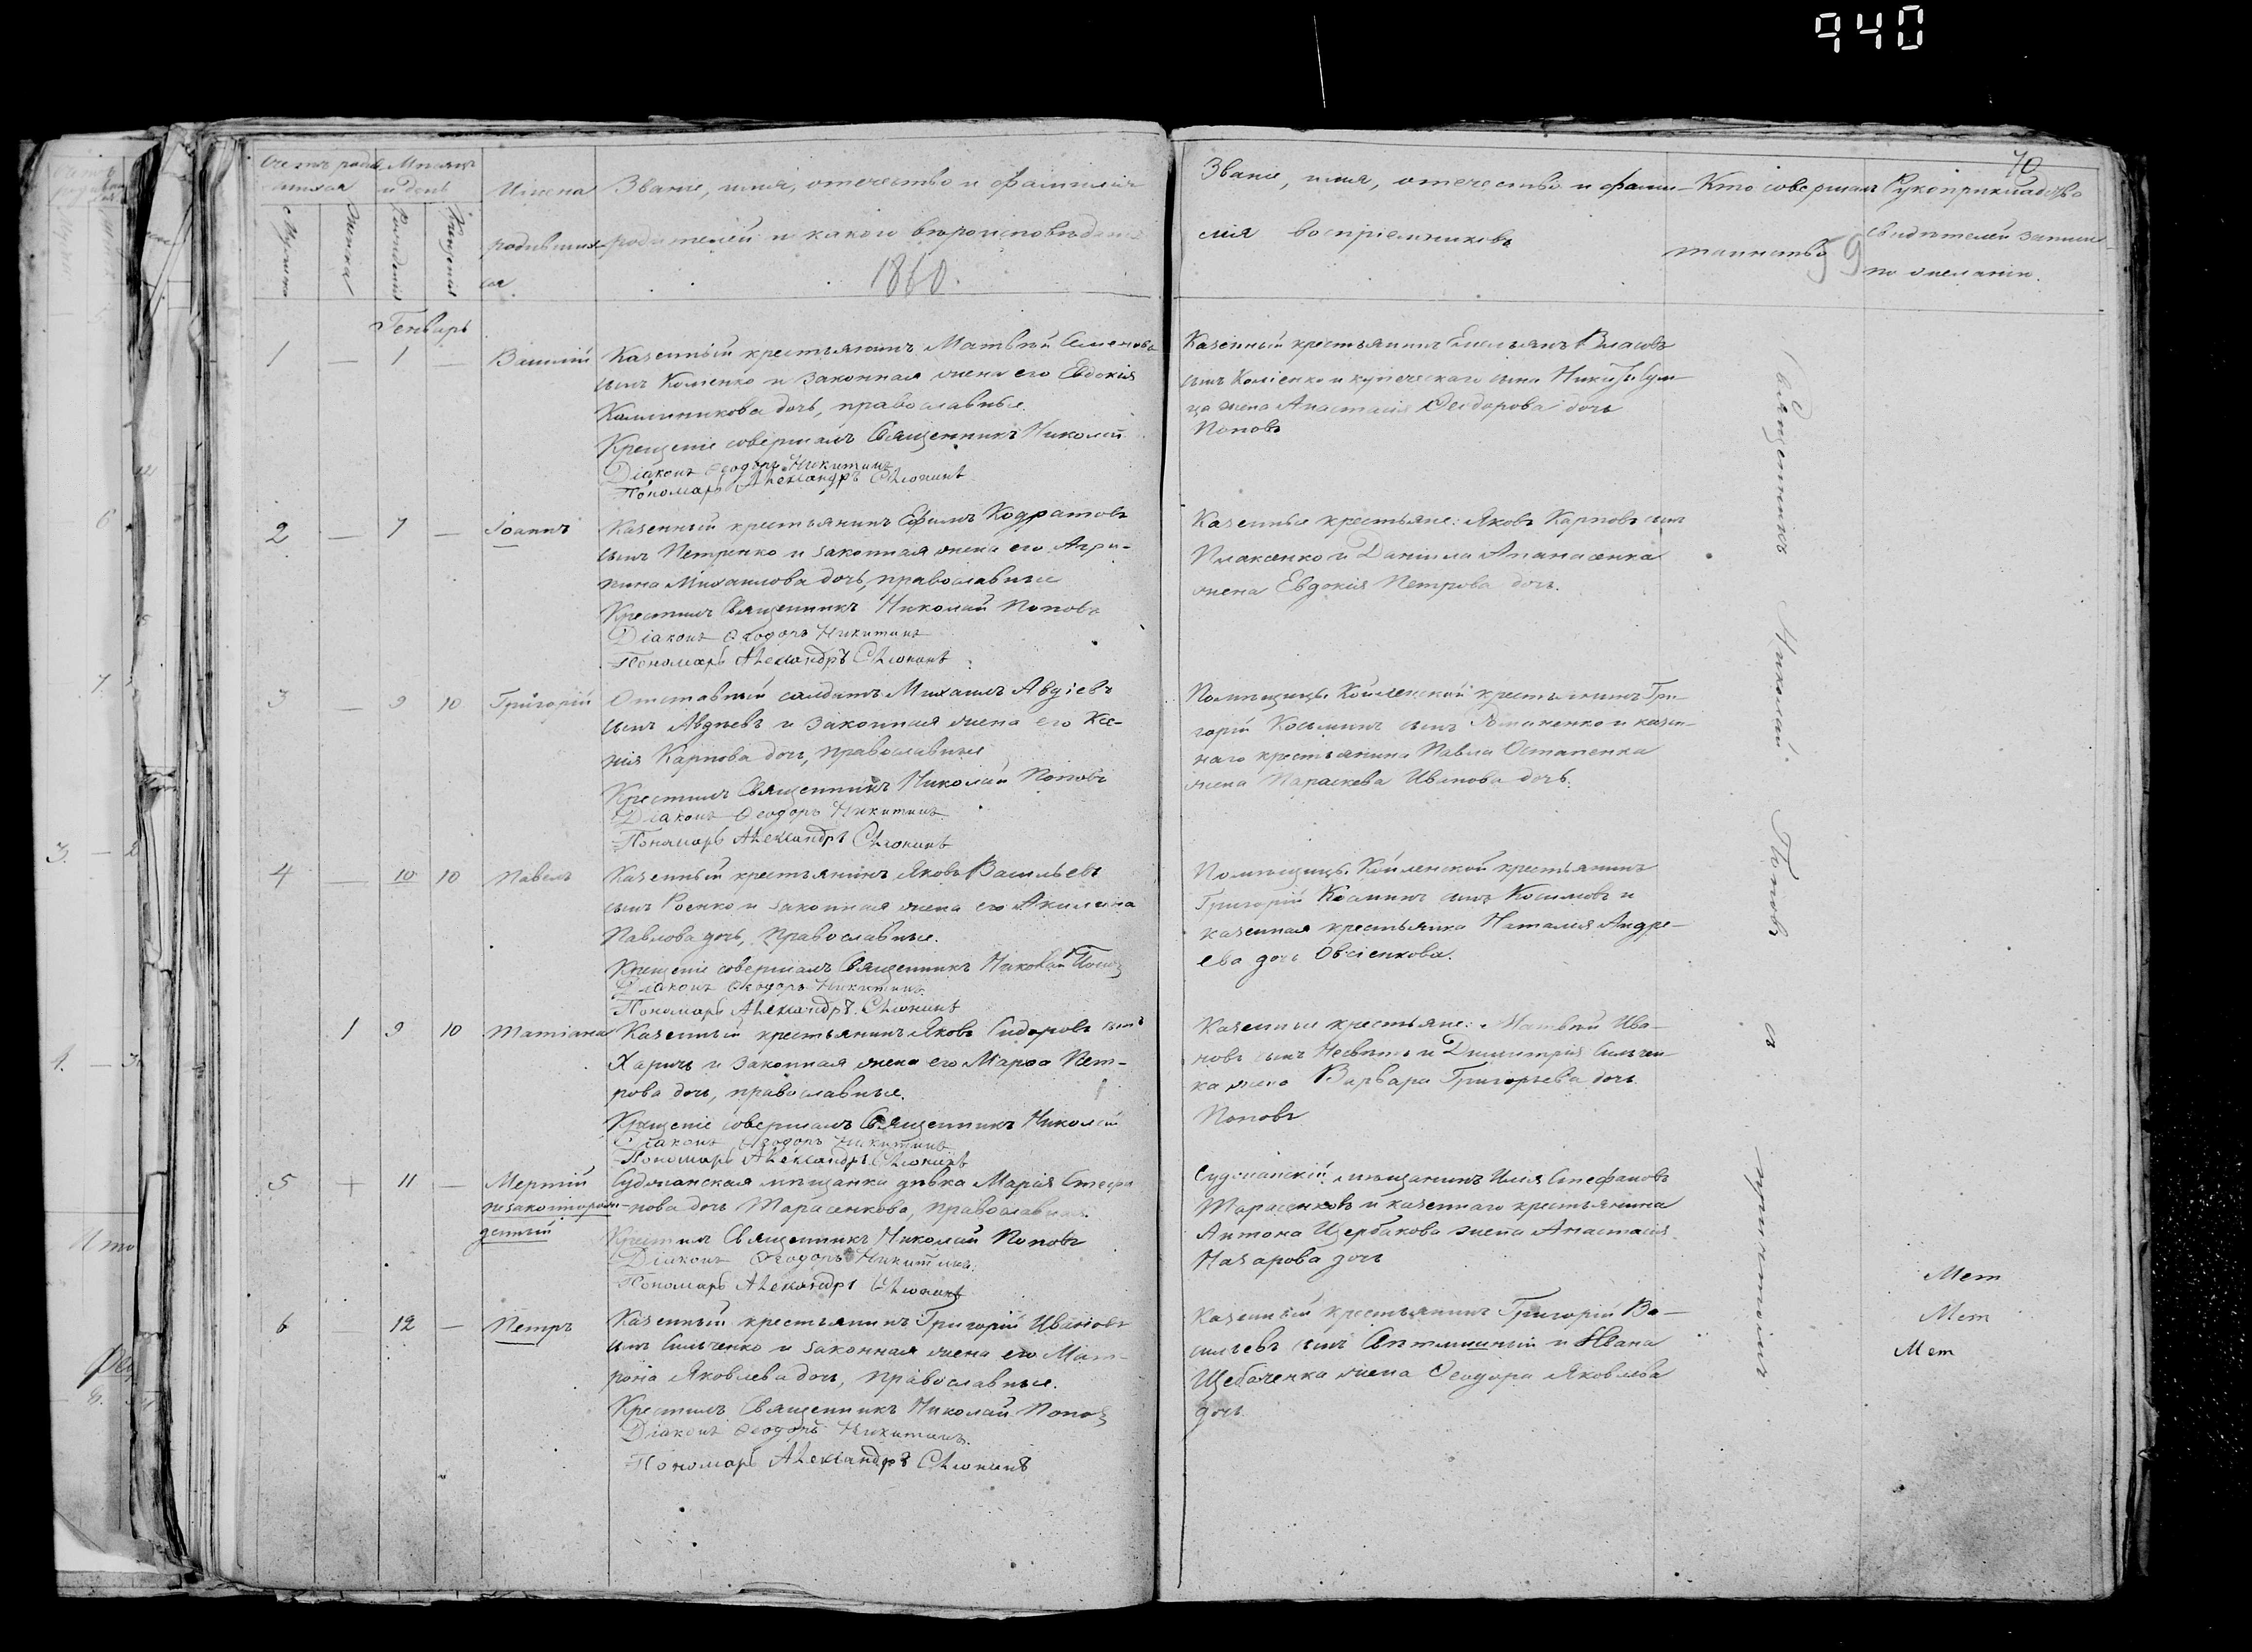 940
70
Счетъ родив- Мѣсяцъ
шихся и день
Мужска Женска Рожденія Крещенія
Имена
родивших-
ся
Званіе, имя, отечество и фамилія
родителей и какого вѣроисповѣданія
1860.
Званіе, имя, отечество и фами-
лія воспріемниковъ
Кто совершалъ
таинство
Рукоприкладство
свидѣтелей записи
по желанію.
Генварь
1 — 1 — Василій
Казенный крестьянинъ Матвѣй Семеновъ
сынъ Коменко и законная жена его Евдокія
Калинникова дочь, православные.
Крещеніе совершалъ Священникъ Николай
Діаконъ Ѳеодоръ Никитинъ
Пономарь Александръ
Казенный крестьянинъ Емельянъ Власовъ
сынъ Коменко и купеческаго сына
жена Анастасія Ѳеодорова дочь
Поповъ
2 — 7 — Іоаннъ
Казенный крестьянинъ Ефимъ Кодратовъ
сынъ Петренко и законная жена его Агри-
пина Михаилова дочь, православные
Крестилъ Священникъ Николай Поповъ
Діаконъ Ѳеодоръ Никитинъ
Пономарь Александръ
Казенные крестьяне: Яковъ Карповъ сынъ
Плаксенко и Даніила Апанасенка
жена Евдокія Петрова дочь.
3 — 9 10 Григорій
Отставный солдатъ Михаилъ Авдіевъ
сынъ Авдѣевъ и законная жена его Ксе-
нія Карпова дочь, православные
Крестилъ Священникъ Николай Поповъ
Діаконъ Ѳеодоръ Никитинъ
Пономарь Александръ
Помѣщицы Койленской крестьянинъ Гри-
горій Косьминъ сынъ и казен-
наго крестьянина Павла Остапенка
жена Параскева Иванова дочь.
4 — 10 10 Павелъ
Казенный крестьянинъ Яковъ Васильевъ
сынъ Роенко и законная жена его Акилина
Павлова дочь, православные.
Крещеніе совершалъ Священникъ Николай Поповъ
Діаконъ Ѳеодоръ Никитинъ
Пономарь Александръ
Помѣщицы Койленской крестьянинъ
Григорій Косминъ сынъ Косимовъ и
казенная крестьянка Наталія Андре-
ева дочь Овсіенкова.
1 9 10 Татіана
Казенный крестьянинъ Яковъ Сидоровъ сынъ
Харичъ и законная жена его Марѳа Пет-
рова дочь, православные.
Крещеніе совершалъ Священникъ Николай
Діаконъ Ѳеодоръ Никитинъ
Пономарь Александръ
Казенные крестьяне: Матвѣй Ива-
новъ сынъ и Димитрія Сильчен-
ка жена Варвара Григорьева дочь
Поповъ
5 + 11 — Мертвій
незаконорож-
денный
Суджанская мѣщанка дѣвка Марія Стефа-
нова дочь Тарасенкова, православная.
Крестилъ Священникъ Николай Поповъ
Діаконъ Ѳеодоръ Никитинъ
Пономарь Александръ
Суджанскій мѣщанинъ Илія Стефановъ
Тарасенковъ и казеннаго крестьянина
Антона Щербакова жена Анастасія
Назарова дочь
6 12 — Петръ
Казенный крестьянинъ Григорій Ивановъ
сынъ Сильченко и законная жена его Мат-
рона Яковлева дочь, православные.
Крестилъ Священникъ Николай Поповъ
Діаконъ Ѳеодоръ Никитинъ
Пономарь Александръ
Казенный крестьянинъ Григорій Ва-
сильевъ сынъ и Ивана
Щебаченка жена Ѳеодора Яковлева
дочь
Священникъ Николай Поповъ съ причтомъ
Мет
Мет
Мет